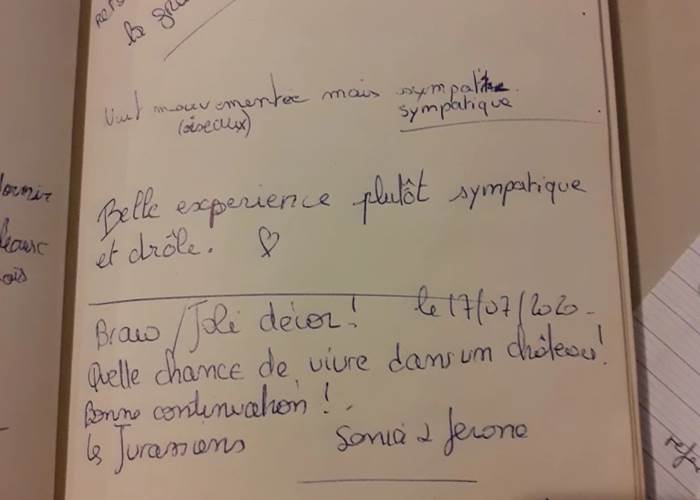 le
mouvementée mais sympatik
(oiseaux) sympatique
Belle experience plutôt sympatique
et drôle.
Bravo / Joli décor! le 17/07/2020-
Quelle chance de vivre dans un château!
Bonne continuation!.
les Jurassiens Sonia & Jerome